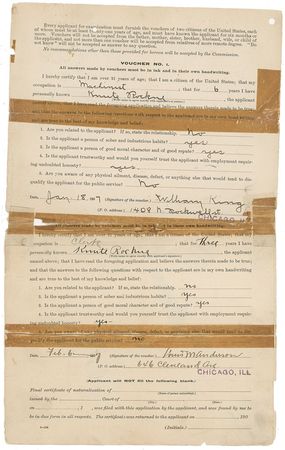 Every applicant for examination must furnish the vouchers of two citizens of the United States, each
of whom must be at least twenty-one years of age, and must have known the applicant for six months or
more. Vouchers will not be accepted from the father, mother, sister, brother, husband, wife, or child of
the applicant, and not more than one voucher will be accepted from relatives of more remote degree. "Do
not know" will not be accepted as answer to any question.
No recommendations other than those provided for herein will be accepted by the Commission.
VOUCHER NO. 1.
All answers made by vouchers must be in ink and in their own handwriting.
I hereby certify that I am over 21 years of age; that I am a citizen of the United States; that my
occupation is Machinist, that for 6 years I have
personally known Knute Rockne, the applicant
and the answers to the questions with respect to the applicant are in my own handwriting and are true
to the best of my knowledge and belief:
1. Are you related to the applicant? If so, state the relationship. No
2. Is the applicant a person of sober and industrious habits? yes
3. Is the applicant a person of good moral character and of good repute? yes
4. Is applicant trustworthy and would you yourself trust the applicant with employment requiring
undoubted honesty? yes.
5. Are you aware of any physical ailment, disease, defect, or anything else that would tend to dis-
qualify the applicant for the public service? No
Date Jan 18, 1907 (Signature of the voucher) William
(P. O. address) 1408 N Rockwell St
CHICAGO
All answers made by vouchers must be in ink and in their own handwriting.
occupation is Clerk, that for three years I have
personally known Knute Rockne, the applicant
named above; that I have read the foregoing application and believe the answers therein made to be true;
and that the answers to the following questions with respect to the applicant are in my own handwriting
and are true to the best of my knowledge and belief:
1. Are you related to the applicant? If so, state the relationship. no
2. Is the applicant a person of sober and industrious habits? yes
3. Is the applicant a person of good moral character and of good repute? yes
4. Is applicant trustworthy and would you yourself trust the applicant with employment requiring
undoubted honesty? yes
5. Are you aware of any physical ailment, disease, defect, or anything else that would tend to dis-
qualify the applicant for the public service? no
Date Feb. 6, 07 (Signature of the voucher) Anderson
(P. O. address) 646 Cleveland Ave
CHICAGO, ILL
(Applicant will NOT fill the following blank.)
Final certificate of naturalization of
issued by the Court of
on, 1, was filed with this application by the applicant, and was found by me to
be in due form in all respects. The certificate was returned to the applicant on, 190
(Initials.)